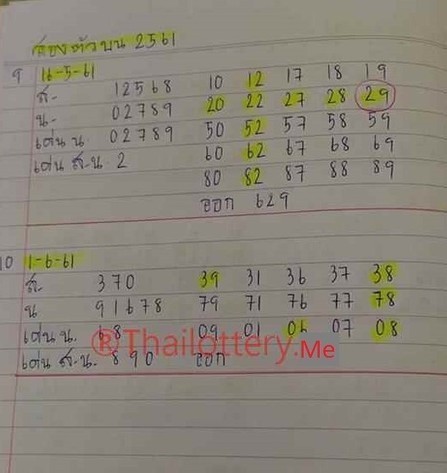 สองตัวบน 2561
9 16-5-61
ส. 12568 10 12 17 18 19
น. 02789 20 22 27 28 29
เด่น น. 02789 50 52 57 58 59
เด่น ส.น 2 60 62 67 68 69
80 82 87 88 89
ออก 629
10 1-6-61
ส. 370 39 31 36 37 38
น 91678 79 71 76 77 78
เด่น น. 8 09 01 06 07 08
เด่น ส.น. 890 ออก
®Thailottery.Me